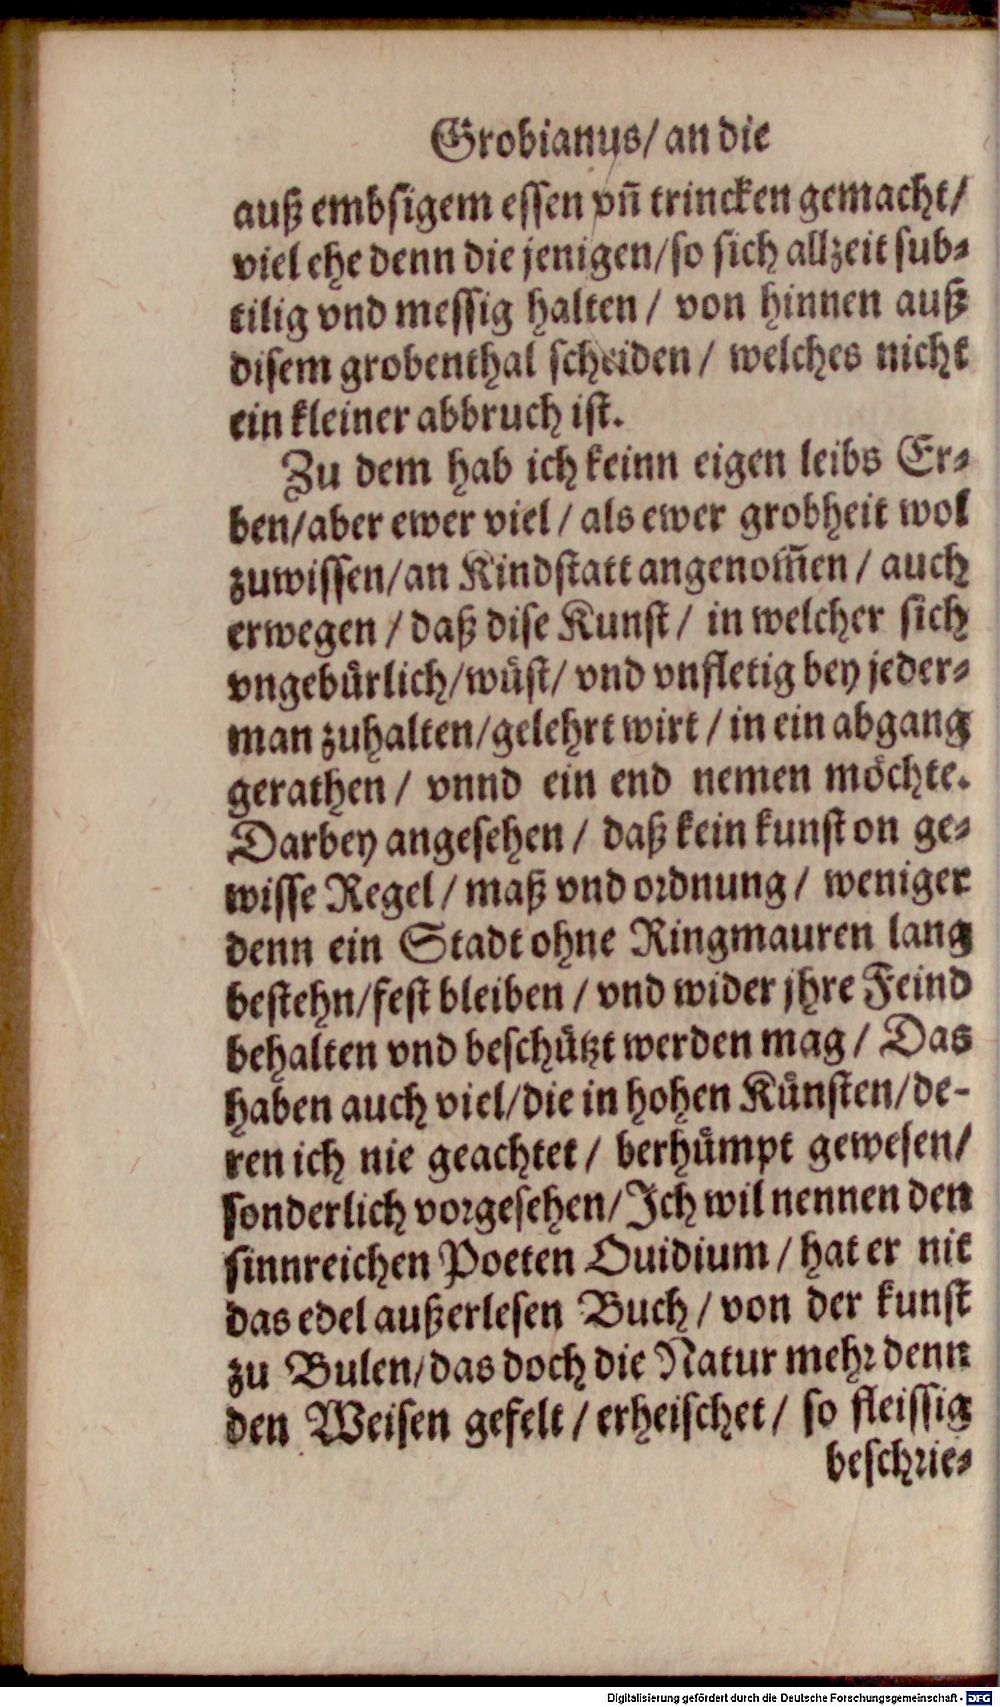 Grobianus/ an die
auß embsigem essen vñ trincken gemacht/
viel ehe denn die jenigen/so sich allzeit sub⸗
tilig vnd messig halten / von hinnen auß
disem grobenthal scheiden / welches nicht
ein kleiner abbruch ist.
Zu dem hab ich keinn eigen leibs Er⸗
ben/aber ewer viel / als ewer grobheit wol
zuwissen/an Kindstatt angenom̃en / auch
erwegen / daß dise Kunst / in welcher sich
vngebuͤrlich/wuͤst/ vnd vnfletig bey jeder⸗
man zuhalten/gelehrt wirt / in ein abgang
gerathen / vnnd ein end nemen moͤchte.
Darbey angesehen / daß kein kunst on ge⸗
wisse Regel / maß vnd ordnung / weniger
denn ein Stadt ohne Ringmauren lang
bestehn/fest bleiben / vnd wider jhre Feind
behalten vnd beschuͤtzt werden mag / Das
haben auch viel/die in hohen Kuͤnsten/de-
ren ich nie geachtet / berhuͤmpt gewesen/
sonderlich vorgesehen/Ich wil nennen den
sinnreichen Poeten Ouidium / hat er nit
das edel außerlesen Buch / von der kunst
zu Bulen/das doch die Natur mehr denn
den Weisen gefelt / erheischet / so fleissig
beschrie⸗
Digitalisierung gefördert durch die Deutsche Forschungsgemeinschaft - DFG